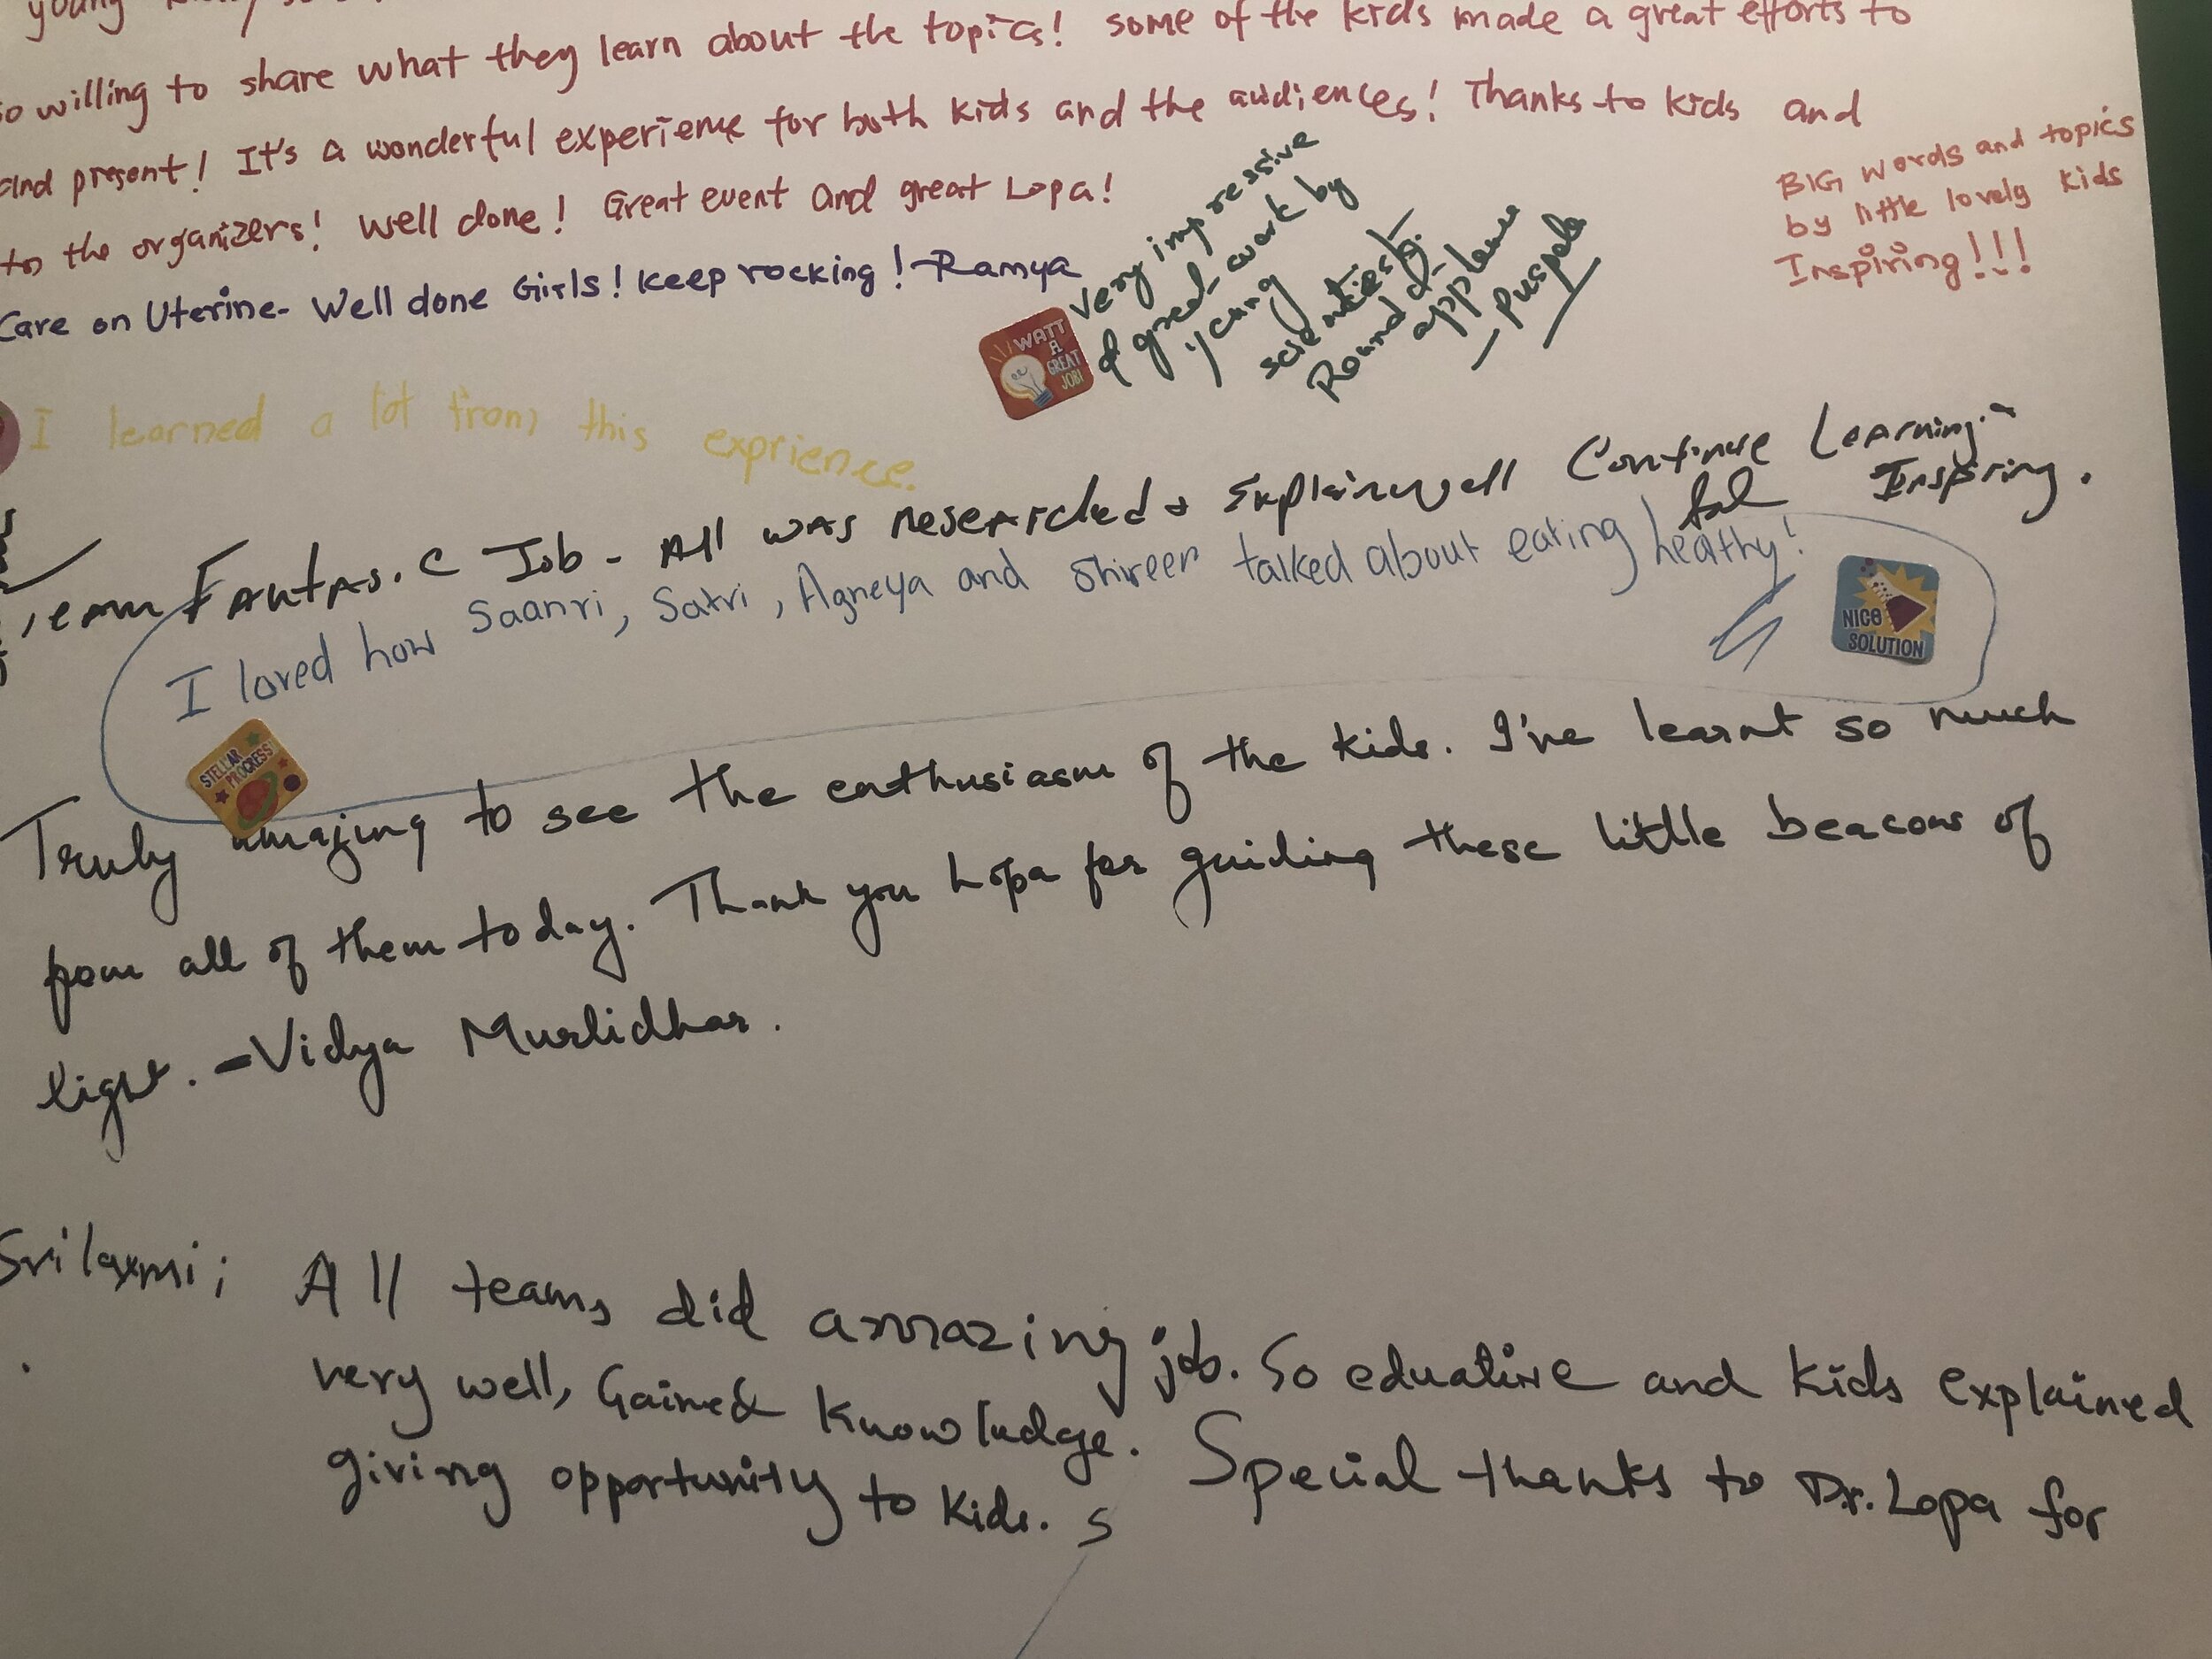 young
so willing to share what they learn about the topics! some of the kids made a great efforts to
and present! It's a wonderful experience for both kids and the audiences! Thanks to kids and
to the organizers! Well done! Great event and great Lopa!
Care on Uterine- Well done Girls! Keep rocking! -Ramya
BIG words and topics
by little lovely kids
Inspiring!!!
WATT
A
GREAT
JOB!
Very impressive
& great work by
young
scientiests.
Round of
applause
- Puspala
I learned a lot from this exprience.
Team Fantas.c Job - All was researched & Explainwell Continue Learning
Inspiring.
I loved how Saanvi, Satvi, Agneya and Shireen talked about eating healthy!
NICE
SOLUTION
STELLAR
PROGRESS!
Truly amazing to see the enthusiasm of the kids. I've learnt so much
from all of them today. Thank you Lopa for guiding these little beacons of
light. - Vidya Murlidhar.
Srilaxmi; All teams did amazing job. So eduative and kids explained
very well, Gained Knowludge. Special thanks to Dr. Lopa for
giving opportunity to kids. s